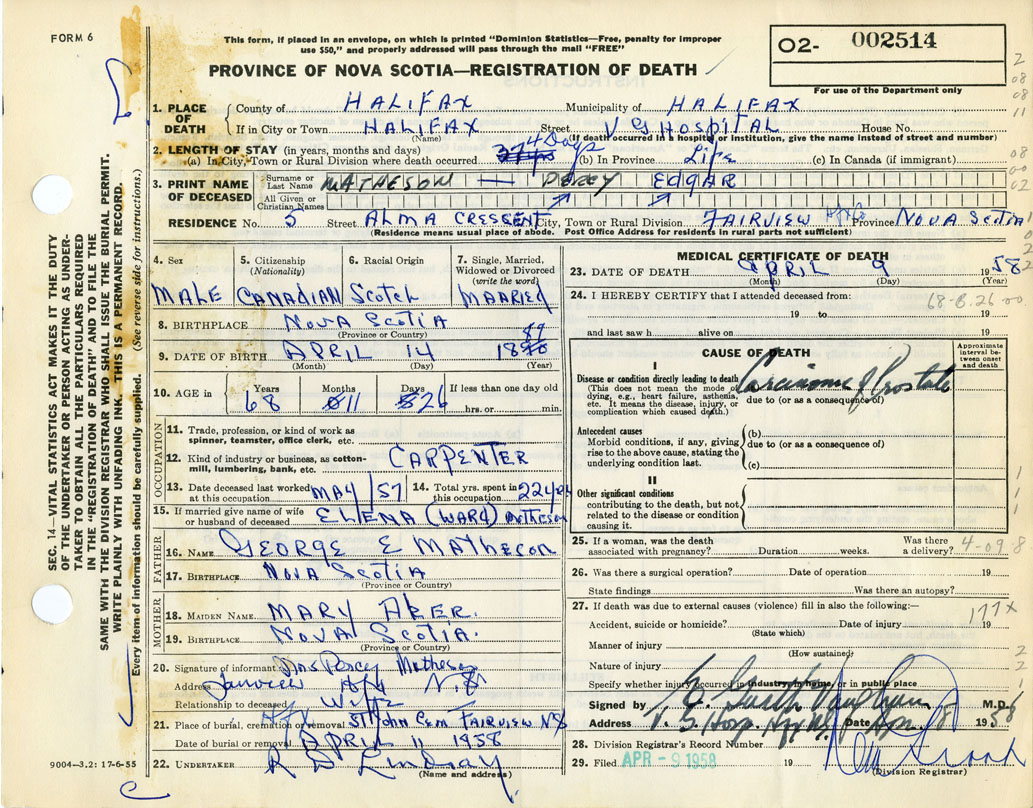 FORM 6
This form, if placed in an envelope, on which is printed "Dominion Statistics—Free, penalty for improper
use $50," and properly addressed will pass through the mail "FREE"
PROVINCE OF NOVA SCOTIA—REGISTRATION OF DEATH
O2- 002514
For use of the Department only
SEC. 14—VITAL STATISTICS ACT MAKES IT THE DUTY
OF THE UNDERTAKER OR PERSON ACTING AS UNDER-
TAKER TO OBTAIN ALL THE PARTICULARS REQUIRED
IN THE "REGISTRATION OF DEATH" AND TO FILE THE
SAME WITH THE DIVISION REGISTRAR WHO SHALL ISSUE THE BURIAL PERMIT.
WRITE PLAINLY WITH UNFADING INK. THIS IS A PERMANENT RECORD.
Every item of information should be carefully supplied. (See reverse side for instructions.)
1. PLACE OF DEATH
County of HALIFAX Municipality of HALIFAX
If in City or Town HALIFAX Street V G HOSPITAL House No.
(Name) (If death occurred in hospital or institution, give the name instead of street and number)
2. LENGTH OF STAY (in years, months and days)
(a) In City, Town or Rural Division where death occurred 4 Days (b) In Province Life (c) In Canada (if immigrant)
3. PRINT NAME OF DECEASED
Surname or Last Name MATHESON — PERCY EDGAR
All Given or Christian Names
RESIDENCE No. 5 Street ALMA CRESSENT City, Town or Rural Division FAIRVIEW Hfx Co Province NOVA SCOTIA
(Residence means usual place of abode. Post Office Address for residents in rural parts not sufficient)
4. Sex
MALE
5. Citizenship
(Nationality)
CANADIAN
6. Racial Origin
Scotch
7. Single, Married,
Widowed or Divorced
(write the word)
MARRIED
8. BIRTHPLACE NOVA SCOTIA
(Province or Country)
9. DATE OF BIRTH APRIL 14 1889
(Month) (Day) (Year)
10. AGE in
Years Months Days If less than one day old
68 11 26 hrs. or min.
OCCUPATION
11. Trade, profession, or kind of work as
spinner, teamster, office clerk, etc.
12. Kind of industry or business, as cotton-
mill, lumbering, bank, etc. CARPENTER
13. Date deceased last worked
at this occupation MAY/57
14. Total yrs. spent in
this occupation 22
15. If married give name of wife
or husband of deceased ELLENA (WARD) MATHESON
FATHER
16. NAME GEORGE E MATHESON
17. BIRTHPLACE NOVA SCOTIA
(Province or Country)
MOTHER
18. MAIDEN NAME MARY AKER.
19. BIRTHPLACE NOVA SCOTIA.
(Province or Country)
20. Signature of informant Percy Matheson
Address Fairview Hfx N.S
Relationship to deceased WIFE
21. Place of burial, cremation or removal ST JOHN CEM FAIRVIEW NS
Hfx
Date of burial or removal APRIL 11 1958
22. UNDERTAKER R D Lindsay
(Name and address)
9004—3.2: 17-6-55
MEDICAL CERTIFICATE OF DEATH
23. DATE OF DEATH APRIL 9 1958
(Month) (Day) (Year)
24. I HEREBY CERTIFY that I attended deceased from: 68-8.26-00
19 to 19
and last saw h alive on 19
CAUSE OF DEATH
Approximate
interval be-
tween onset
and death
I
Disease or condition directly leading to death Carcinoma of Prostate
(This does not mean the mode of
dying, e.g., heart failure, asthenia,
etc. It means the disease, injury, or
complication which caused death.)
due to (or as a consequence of)
Antecedent causes
Morbid conditions, if any, giving
rise to the above cause, stating the
underlying condition last.
(b)
due to (or as a consequence of)
(c)
II
Other significant conditions
contributing to the death, but not
related to the disease or condition
causing it.
25. If a woman, was the death
associated with pregnancy? Duration weeks. Was there
a delivery? 4-09-8
26. Was there a surgical operation? Date of operation 19
State findings Was there an autopsy?
27. If death was due to external causes (violence) fill in also the following:—
177x
Accident, suicide or homicide? Date of injury 19
(State which)
Manner of injury
(How sustained)
Nature of injury
Specify whether injury occurred in industry, in home, or in public place
Signed by M.D.
Address V. G. Hosp. Hfx Date Apr 1958
28. Division Registrar's Record Number
29. Filed APR - 9 1958 19
(Division Registrar)